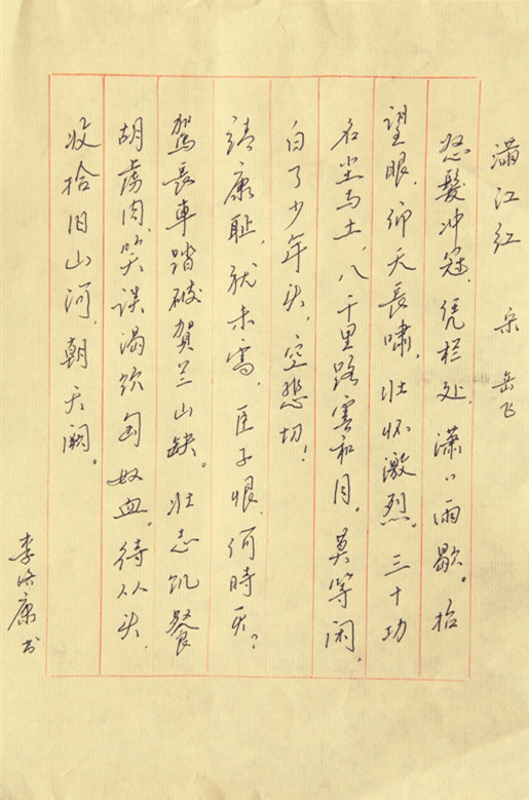 满江红 宋 岳飞
怒髮冲冠，凭栏处，潇〻雨歇。抬
望眼，仰天長啸，壮怀激烈。三十功
名尘与土，八千里路雲和月。莫等闲，
白了少年头，空悲切！
靖康耻，犹未雪，臣子恨，何時灭？
駕長車踏破賀兰山缺。壮志飢餐
胡虏肉，笑谈渴饮匈奴血。待从头，
收拾旧山河，朝天阙。
李 康书